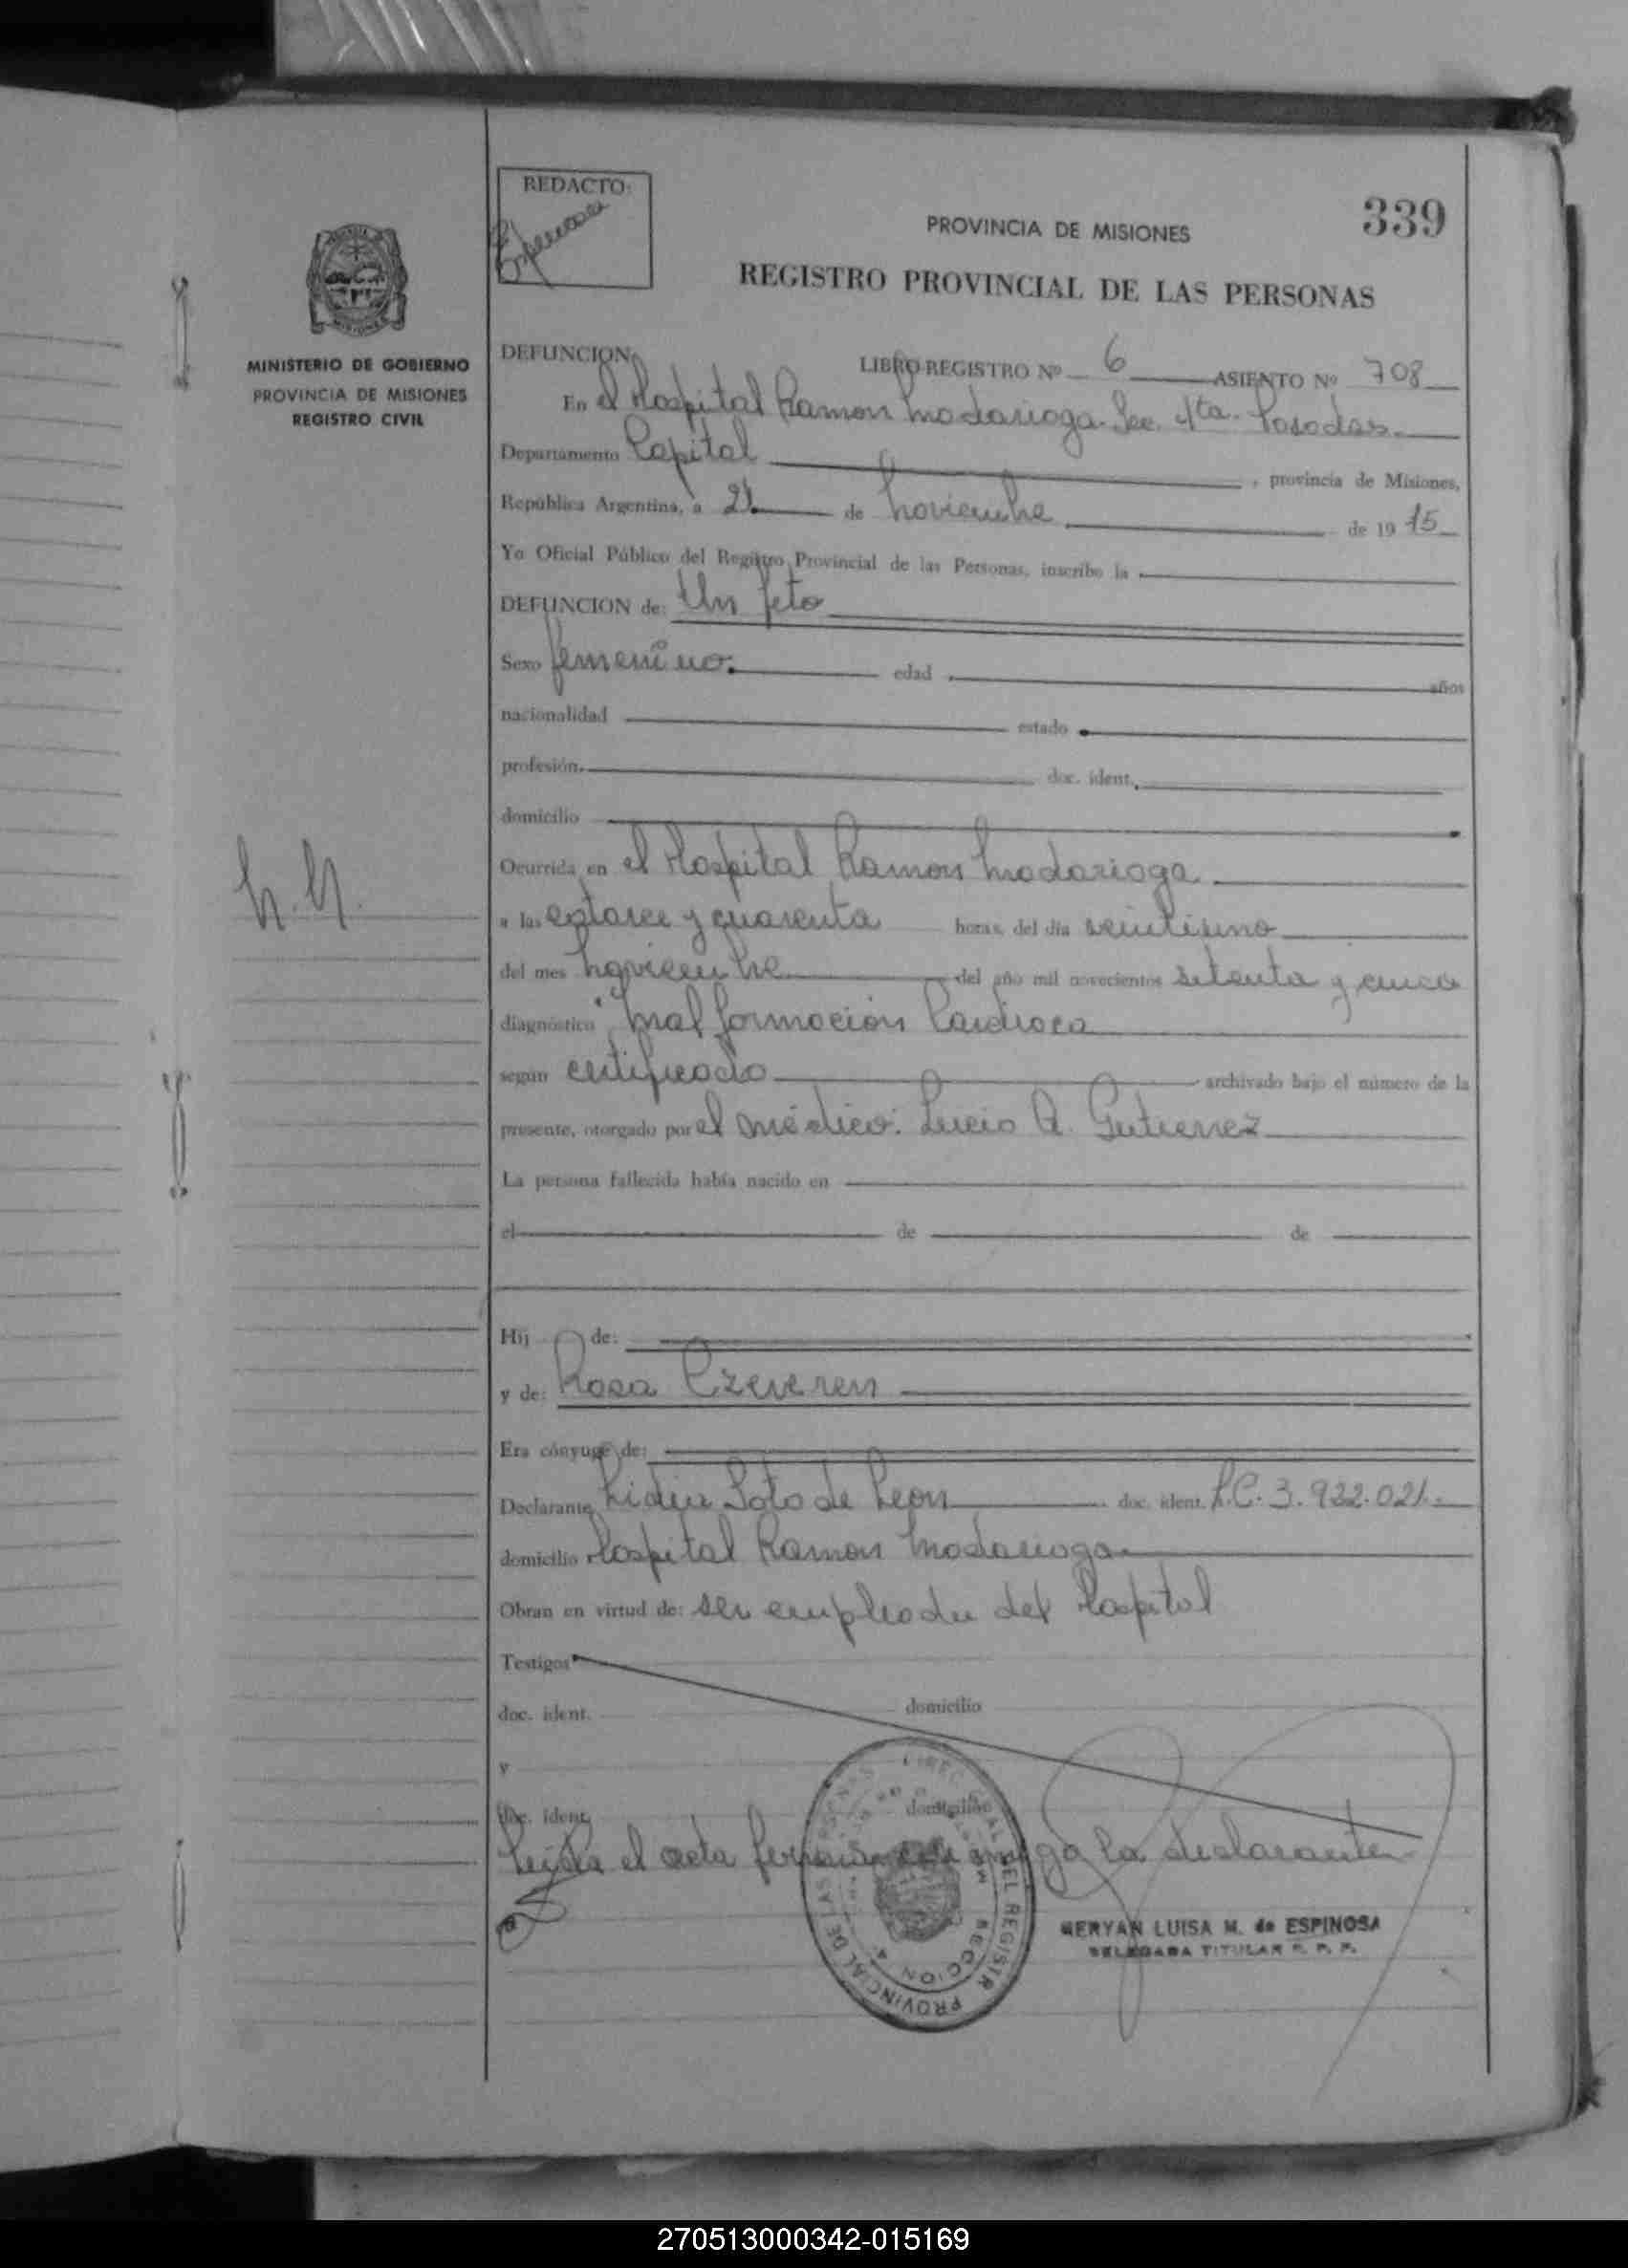 REDACTO:
339
PROVINCIA DE MISIONES
REGISTRO PROVINCIAL DE LAS PERSONAS
MINISTERIO DE GOBIERNO
PROVINCIA DE MISIONES
REGISTRO CIVIL
DEFUNCION LIBRO REGISTRO Nº 6 ASIENTO Nº 708
En el Hospital Ramon Madariaga. Sec. 4ta. Posadas
Departamento Capital , provincia de Misiones,
República Argentina, a 21 de Noviembre de 19 75
Yo Oficial Público del Registro Provincial de las Personas, inscribo la
DEFUNCION de: Un feto
Sexo femenino. edad años
nacionalidad estado
profesión. doc. ident.
domicilio
Ocurrida en el Hospital Ramon Madariaga
N.N.
a las catorce y cuarenta horas, del día veintiuno
del mes Noviembre del año mil novecientos setenta y cinco
diagnóstico Mal formacion Cardiaca
según certificado archivado bajo el número de la
presente, otorgado por el médico: Lucio A. Gutierrez
La persona fallecida había nacido en
el de de
Hij de:
y de: Rosa Ezeveren
Era cónyuge de:
Declarante Lidia Soto de Leon doc. ident. L.C. 3.922.021.
domicilio Hospital Ramon Madariaga
Obran en virtud de: ser empleada del Hospital
Testigos
doc. ident. domicilio
y
doc. ident. domicilio
Leida el acta la declarante
MERYAN LUISA M. de ESPINOSA
DELEGADA TITULAR R. P. P.
DEL REGISTR PROVINCIAL DE LAS PERSONAS
SECCION 4
270513000342-015169